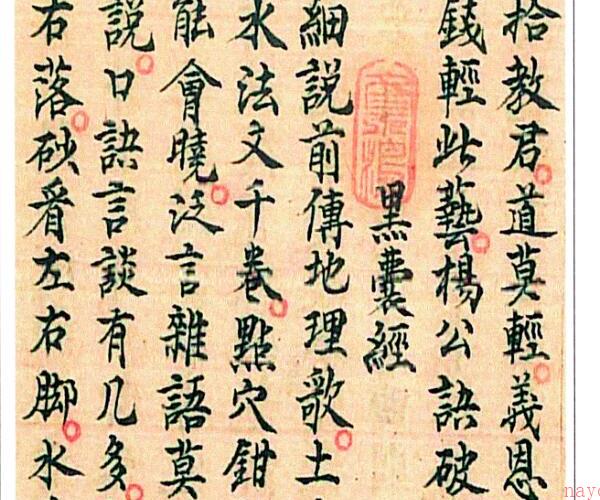 拾教君道莫輕義恩
錢輕此藝楊公語破
黑囊經
細說前傳地理歌土
水法文千卷點穴鉗
能會曉泛言雜語莫
說口訣言談有几多
右落砂看左右脚水
nayo